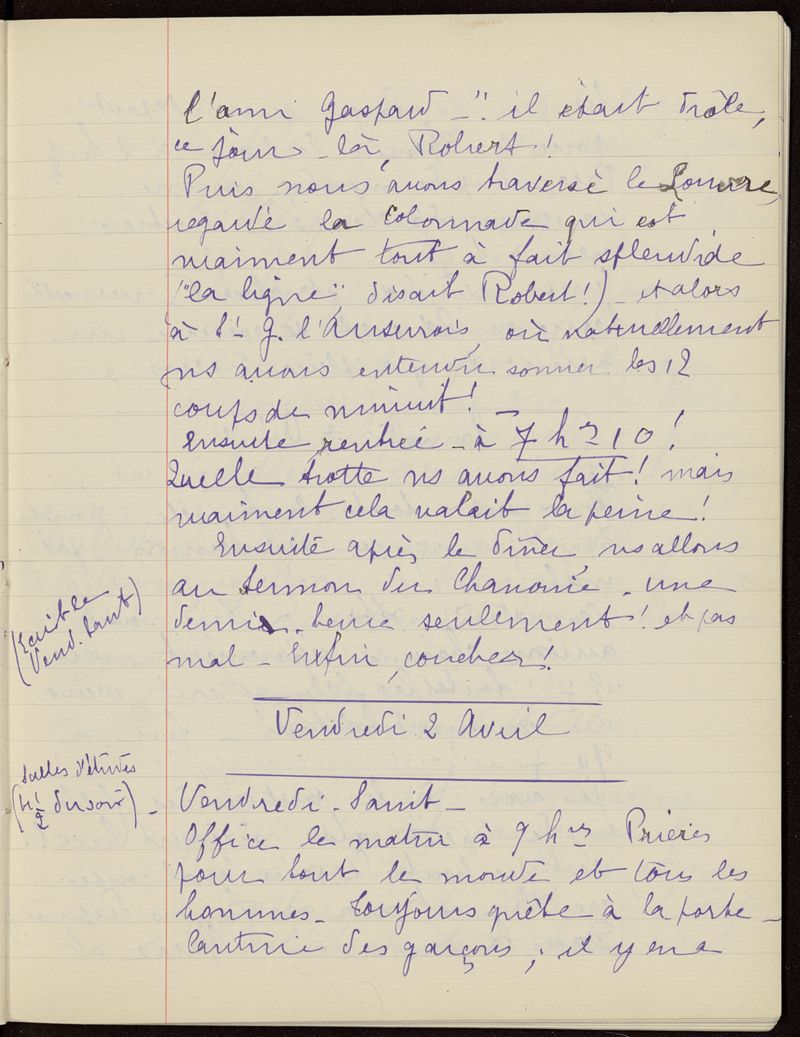 l'ami Gaspard -". il était drôle,
ce jour-là, Robert!
Puis nous avons traversé le Louvre,
regardé la colonnade qui est
vraiment tout à fait splendide
("la ligne", disait Robert!) - et alors
à St- G. l'Auxerrois, où naturellement
ns avons entendu sonner les 12
coups de minuit! -
Ensuite rentrée - à 7 hres 10!
Quelle trotte ns avons fait! mais
vraiment cela valait la peine!
Ensuite après le dîner, ns allons
au sermon du Chanoine. une
demie-heure seulement! et pas
mal - Enfin, coucher!
(Ecrit le
Vend. Saint)
Vendredi 2 Avril
Salles d'études
(4 1/2 du soir) -
Vendredi-Saint -
Office le matin à 9 hres Prières
pour tout le monde et tous les
hommes - toujours quête à la porte -
des garçons ; il y en a